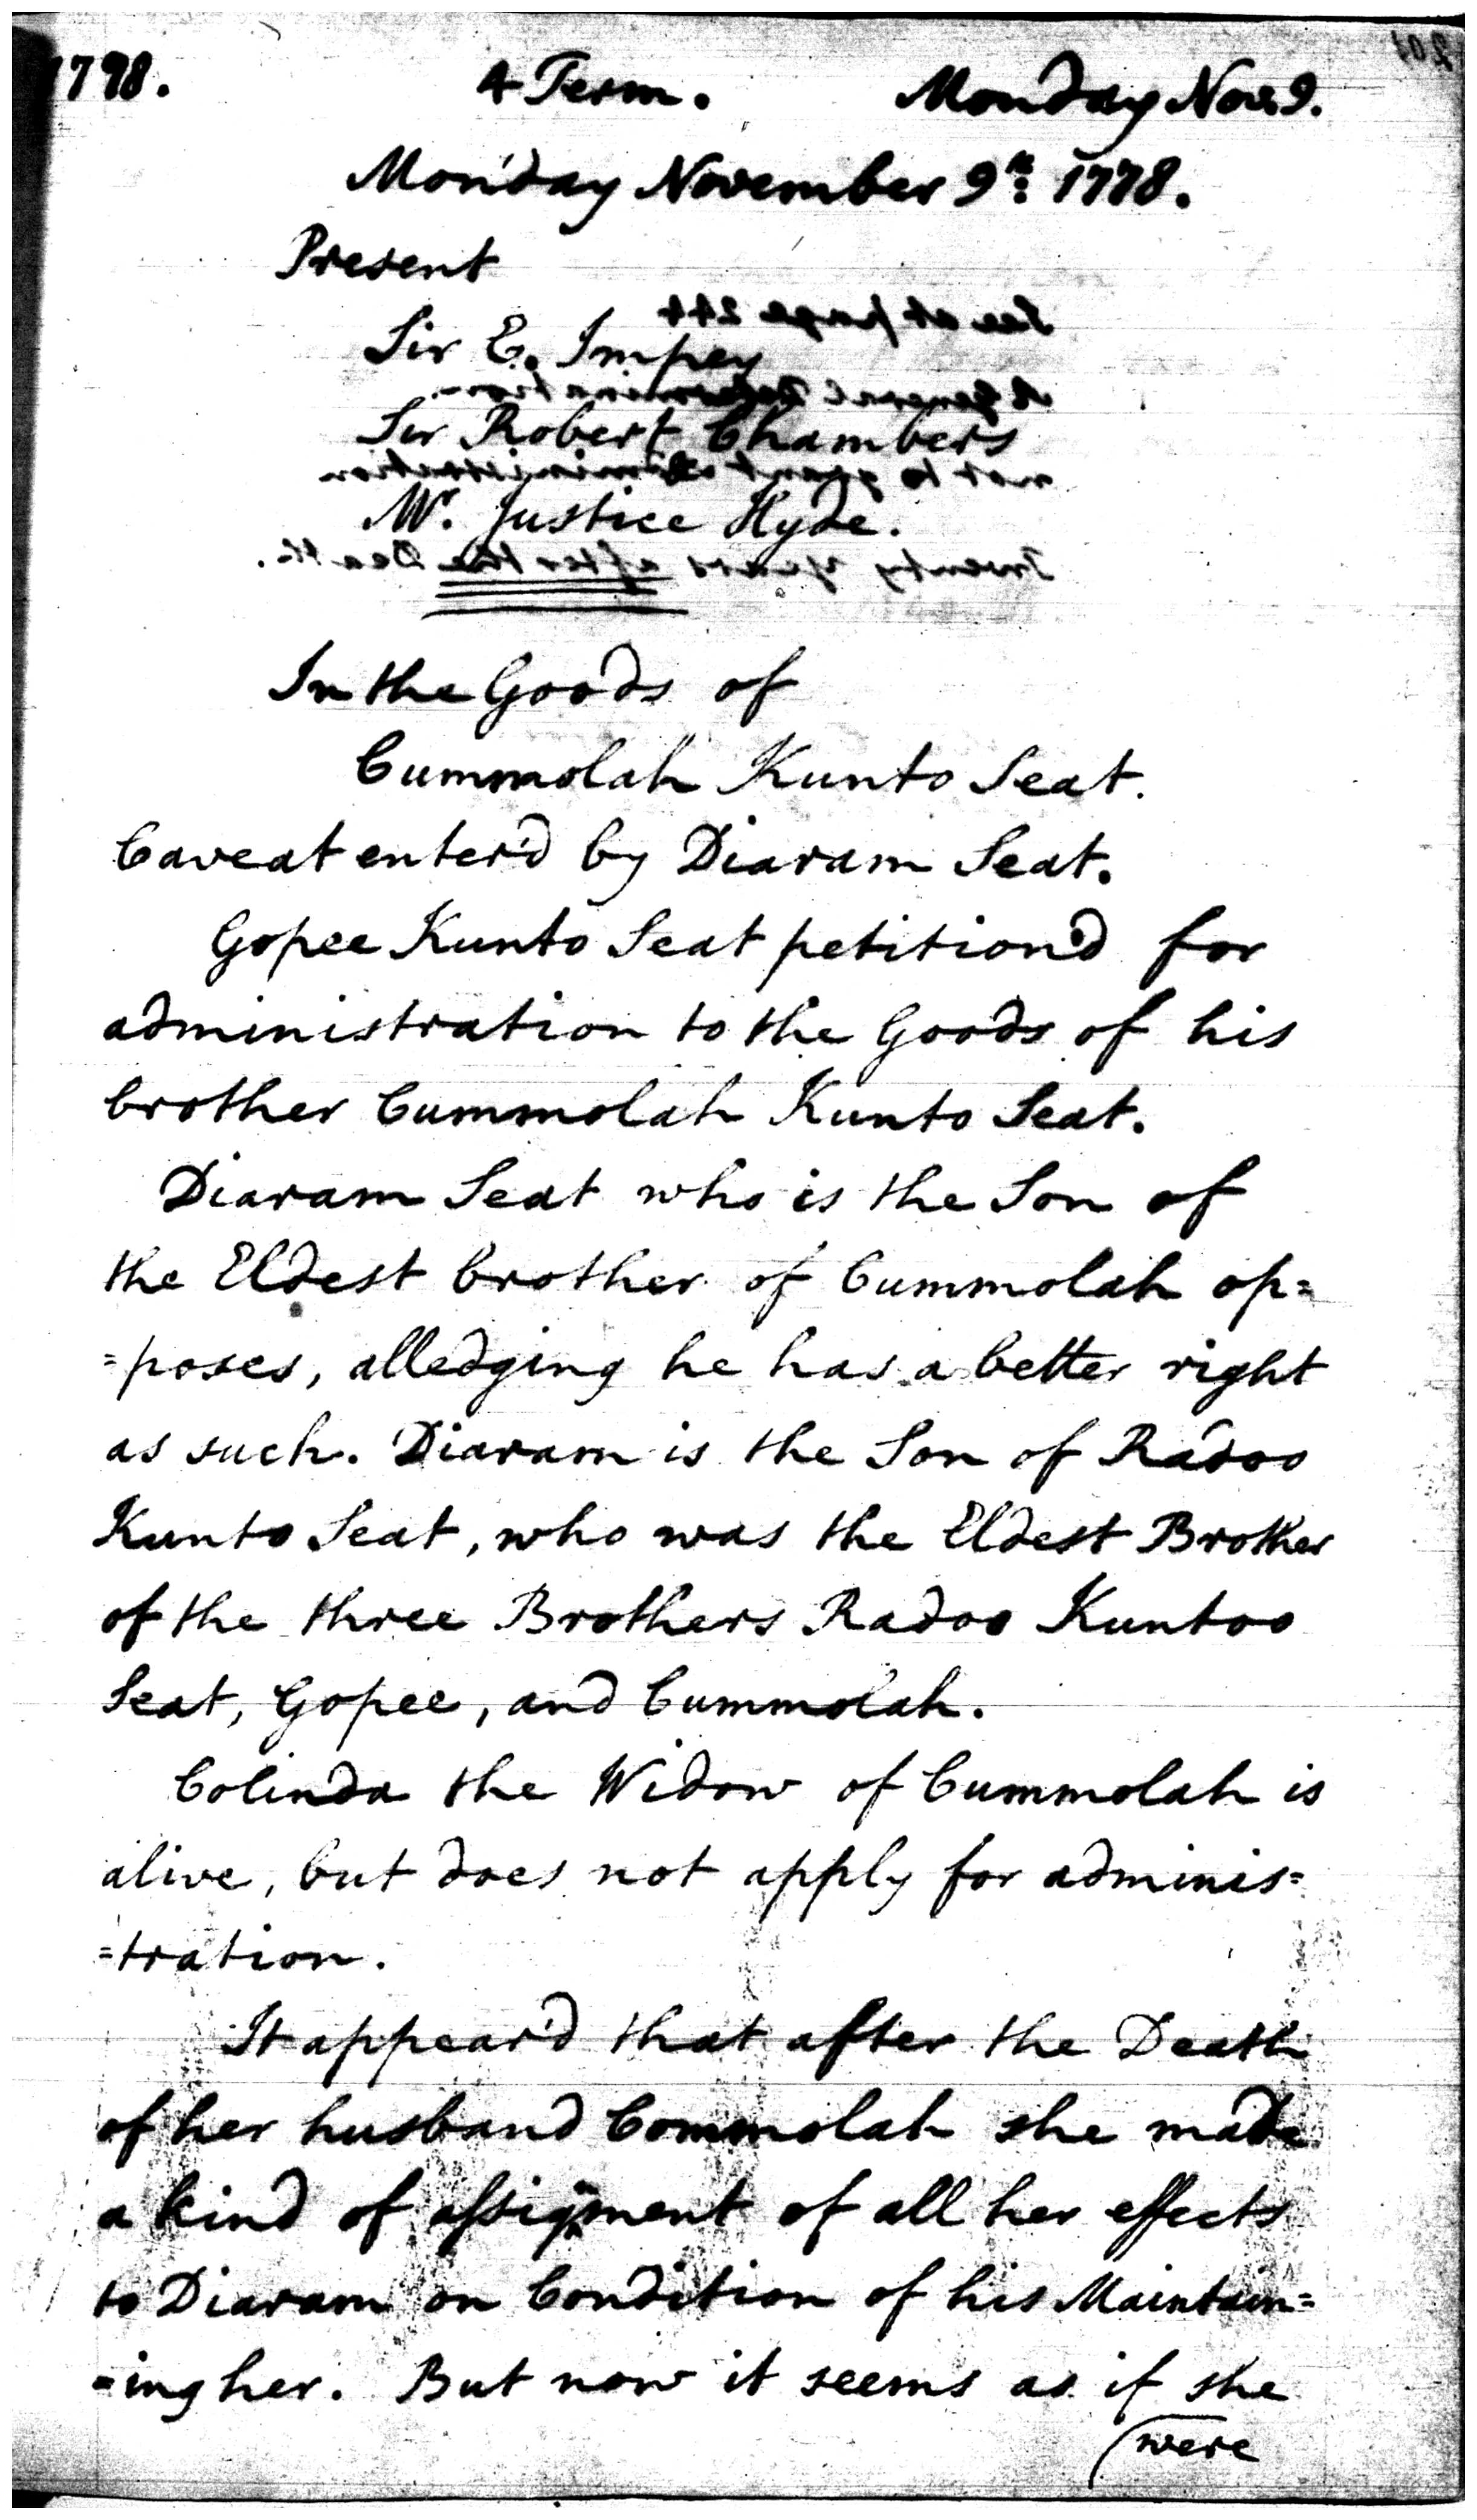 1778. 4 Term. Monday Nov. 9.
Monday November 9th. 1778.
Present
See at page 244
Sir E. Impey
A General Determination
Sir Robert Chambers
not to grant administration
Mr. Justice Hyde.
Twenty Years after the Death.
In the Goods of
Cummolah Kunto Seat.
Caveat enter'd by Diaram Seat.
Gopee Kunto Seat petition'd for
administration to the Goods of his
brother Cummolah Kunto Seat.
Diaram Seat who is the Son of
the Eldest brother of Cummolah op=
=poses, alledging he has a better right
as such. Diaram is the Son of Radoo
Kunto Seat, who was the Eldest Brother
of the three Brothers Radoo Kuntoo
Seat, Gopee, and Cummolah.
Colinda the Widow of Cummolah is
alive, but does not apply for adminis=
=tration.
It appear'd that after the Death
of her husband Commolah she made
a kind of assignment of all her effects
to Diaram on Condition of his Maintain=
=ing her. But now it seems as if she
were